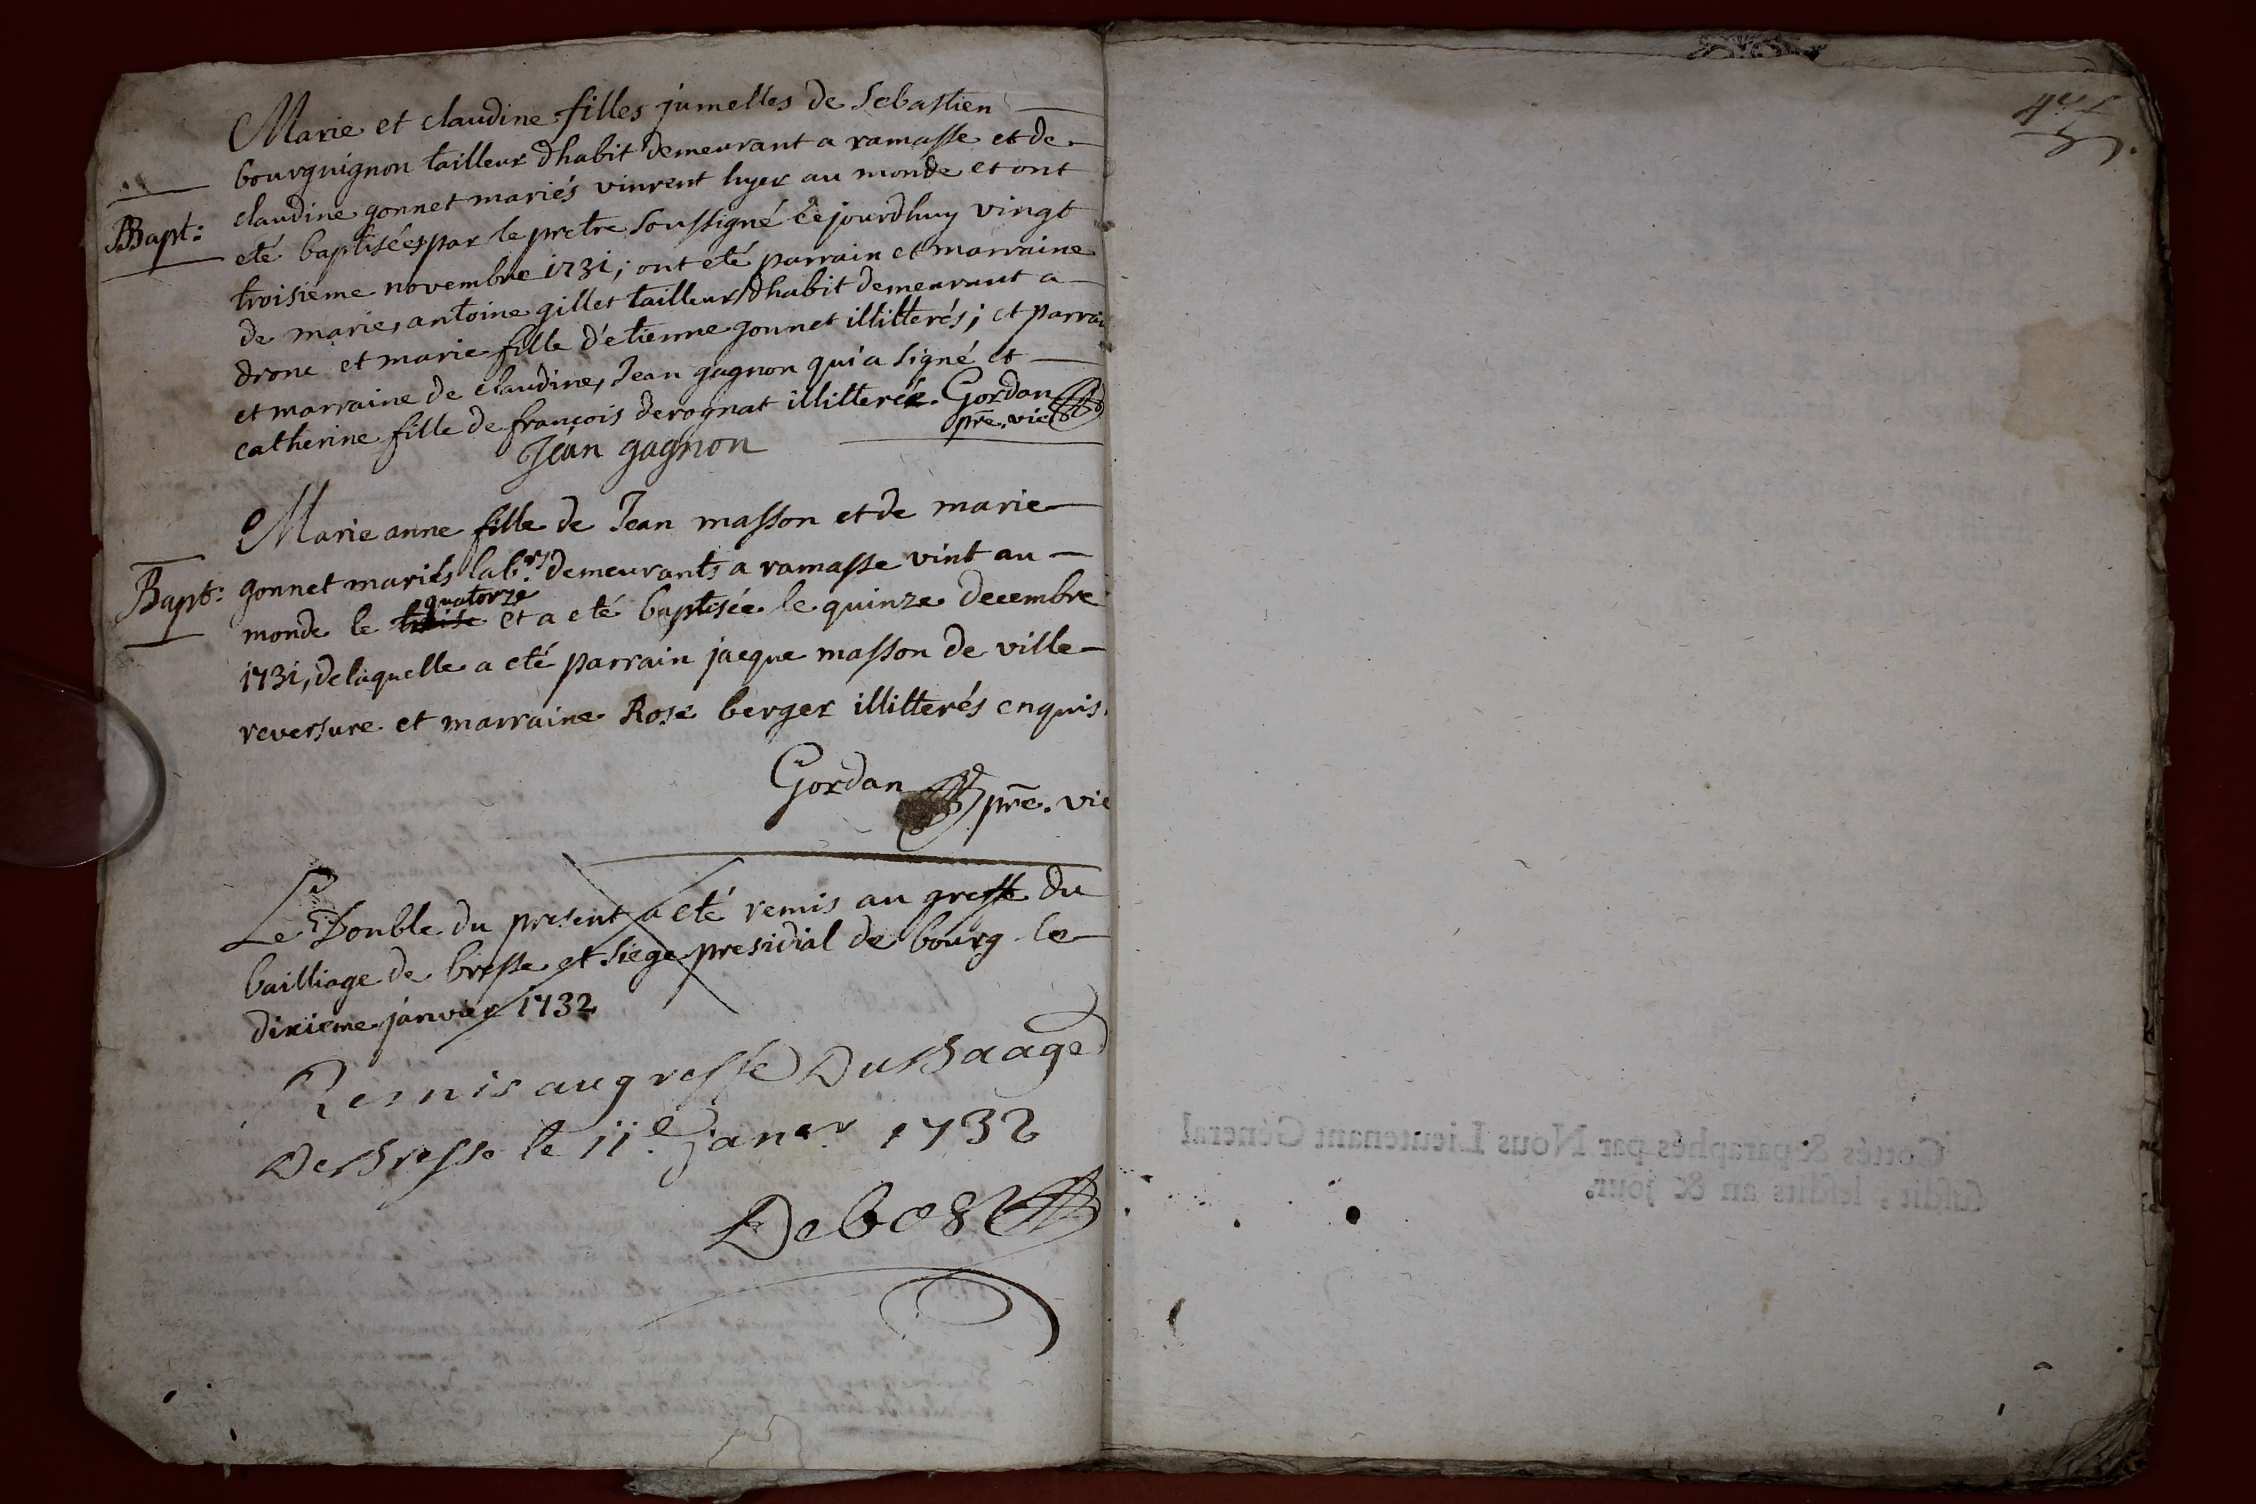 Marie et claudine filles jumelles de Sebastien
bourguignon tailleur dhabit demeurant a ramasse et de
claudine gonnet mariés vinrent hyer au monde et ont
BBapt:
eté baptisées par le pretre soussigné cejourdhuy vingt
troisieme novembre 1731; ont eté parrain et marraine
de marie, antoine gillet tailleur dhabit demeurant a
drone et marie fille d'etienne gonnet illitterés; et parrai
et marraine de claudine, Jean gagnon qui a signé et
catherine fille de françois derognat illitterée. Gordan
pre. vic
Jean gagnon
Marie anne fille de Jean masson et de marie
Bapt:
gonnet mariés labrs demeurants a ramasse vint au
quatorze
monde le et a eté baptisée le quinze decembre
1731, de laquelle a eté parrain jacque masson de ville
reversure et marraine Rose berger illitterés enquis.
Gordan pre. vic
Le Double du present a eté remis au greffe du
bailliage de bresse et siege presidial de bourg le
dixieme janvier 1732
Remis au greffe Du Baage
De Bresse le 11e Janer 1732
Debost
Cottés & paraphés par Nous Lieutenant Général
susdit, lesdits an & jour.